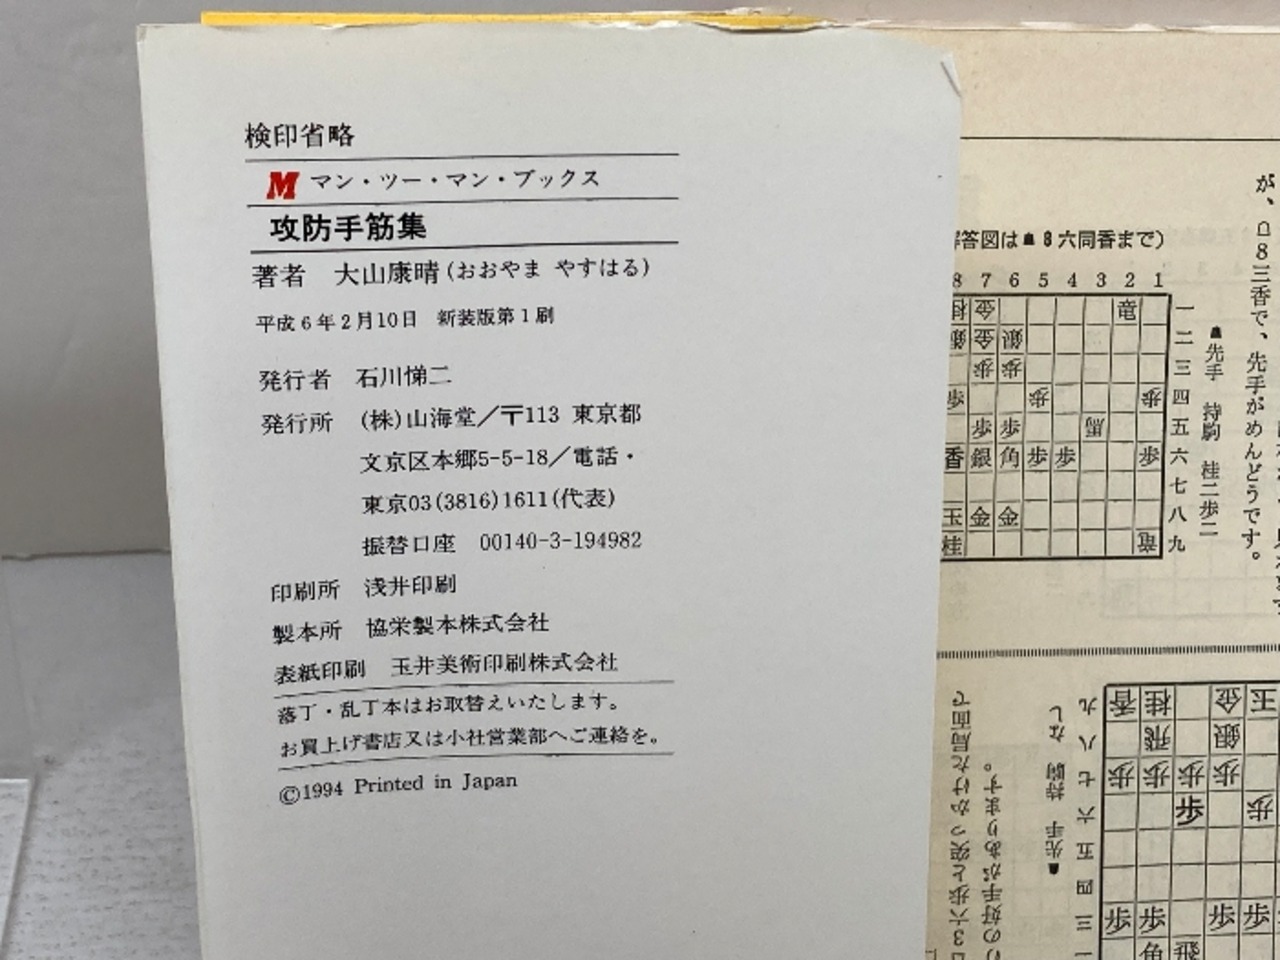 検印省略
M マン・ツー・マン・ブックス
攻防手筋集
著者 大山康晴(おおやま やすはる)
平成6年2月10日 新装版第1刷
発行者 石川悌二
発行所 (株)山海堂/〒113 東京都
文京区本郷5-5-18/電話・
東京03(3816)1611(代表)
振替口座 00140-3-194982
印刷所 浅井印刷
製本所 協栄製本株式会社
表紙印刷 玉井美術印刷株式会社
落丁・乱丁本はお取替えいたします。
お買上げ書店又は小社営業部へご連絡を。
©1994 Printed in Japan
が、☖8三香で、先手がめんどうです。
答図は☗8六同香まで)
8 7 6 5 4 3 2 1
一
二
三
四
五
六
七
八
九
☗先手 持駒 桂二歩二
金 竜
銀 金 銀
歩 歩
歩 歩 歩
歩 歩 馬
香 銀 角 歩 歩 歩
玉 金 金
桂 竜
3六歩と突っかけた局面で
の好手があります。
☗先手 持駒 なし
九
八
七
六
五
四
三
香 桂 金 玉
飛 銀
歩 歩 歩 歩
歩 歩
歩 歩 歩 歩
角 飛